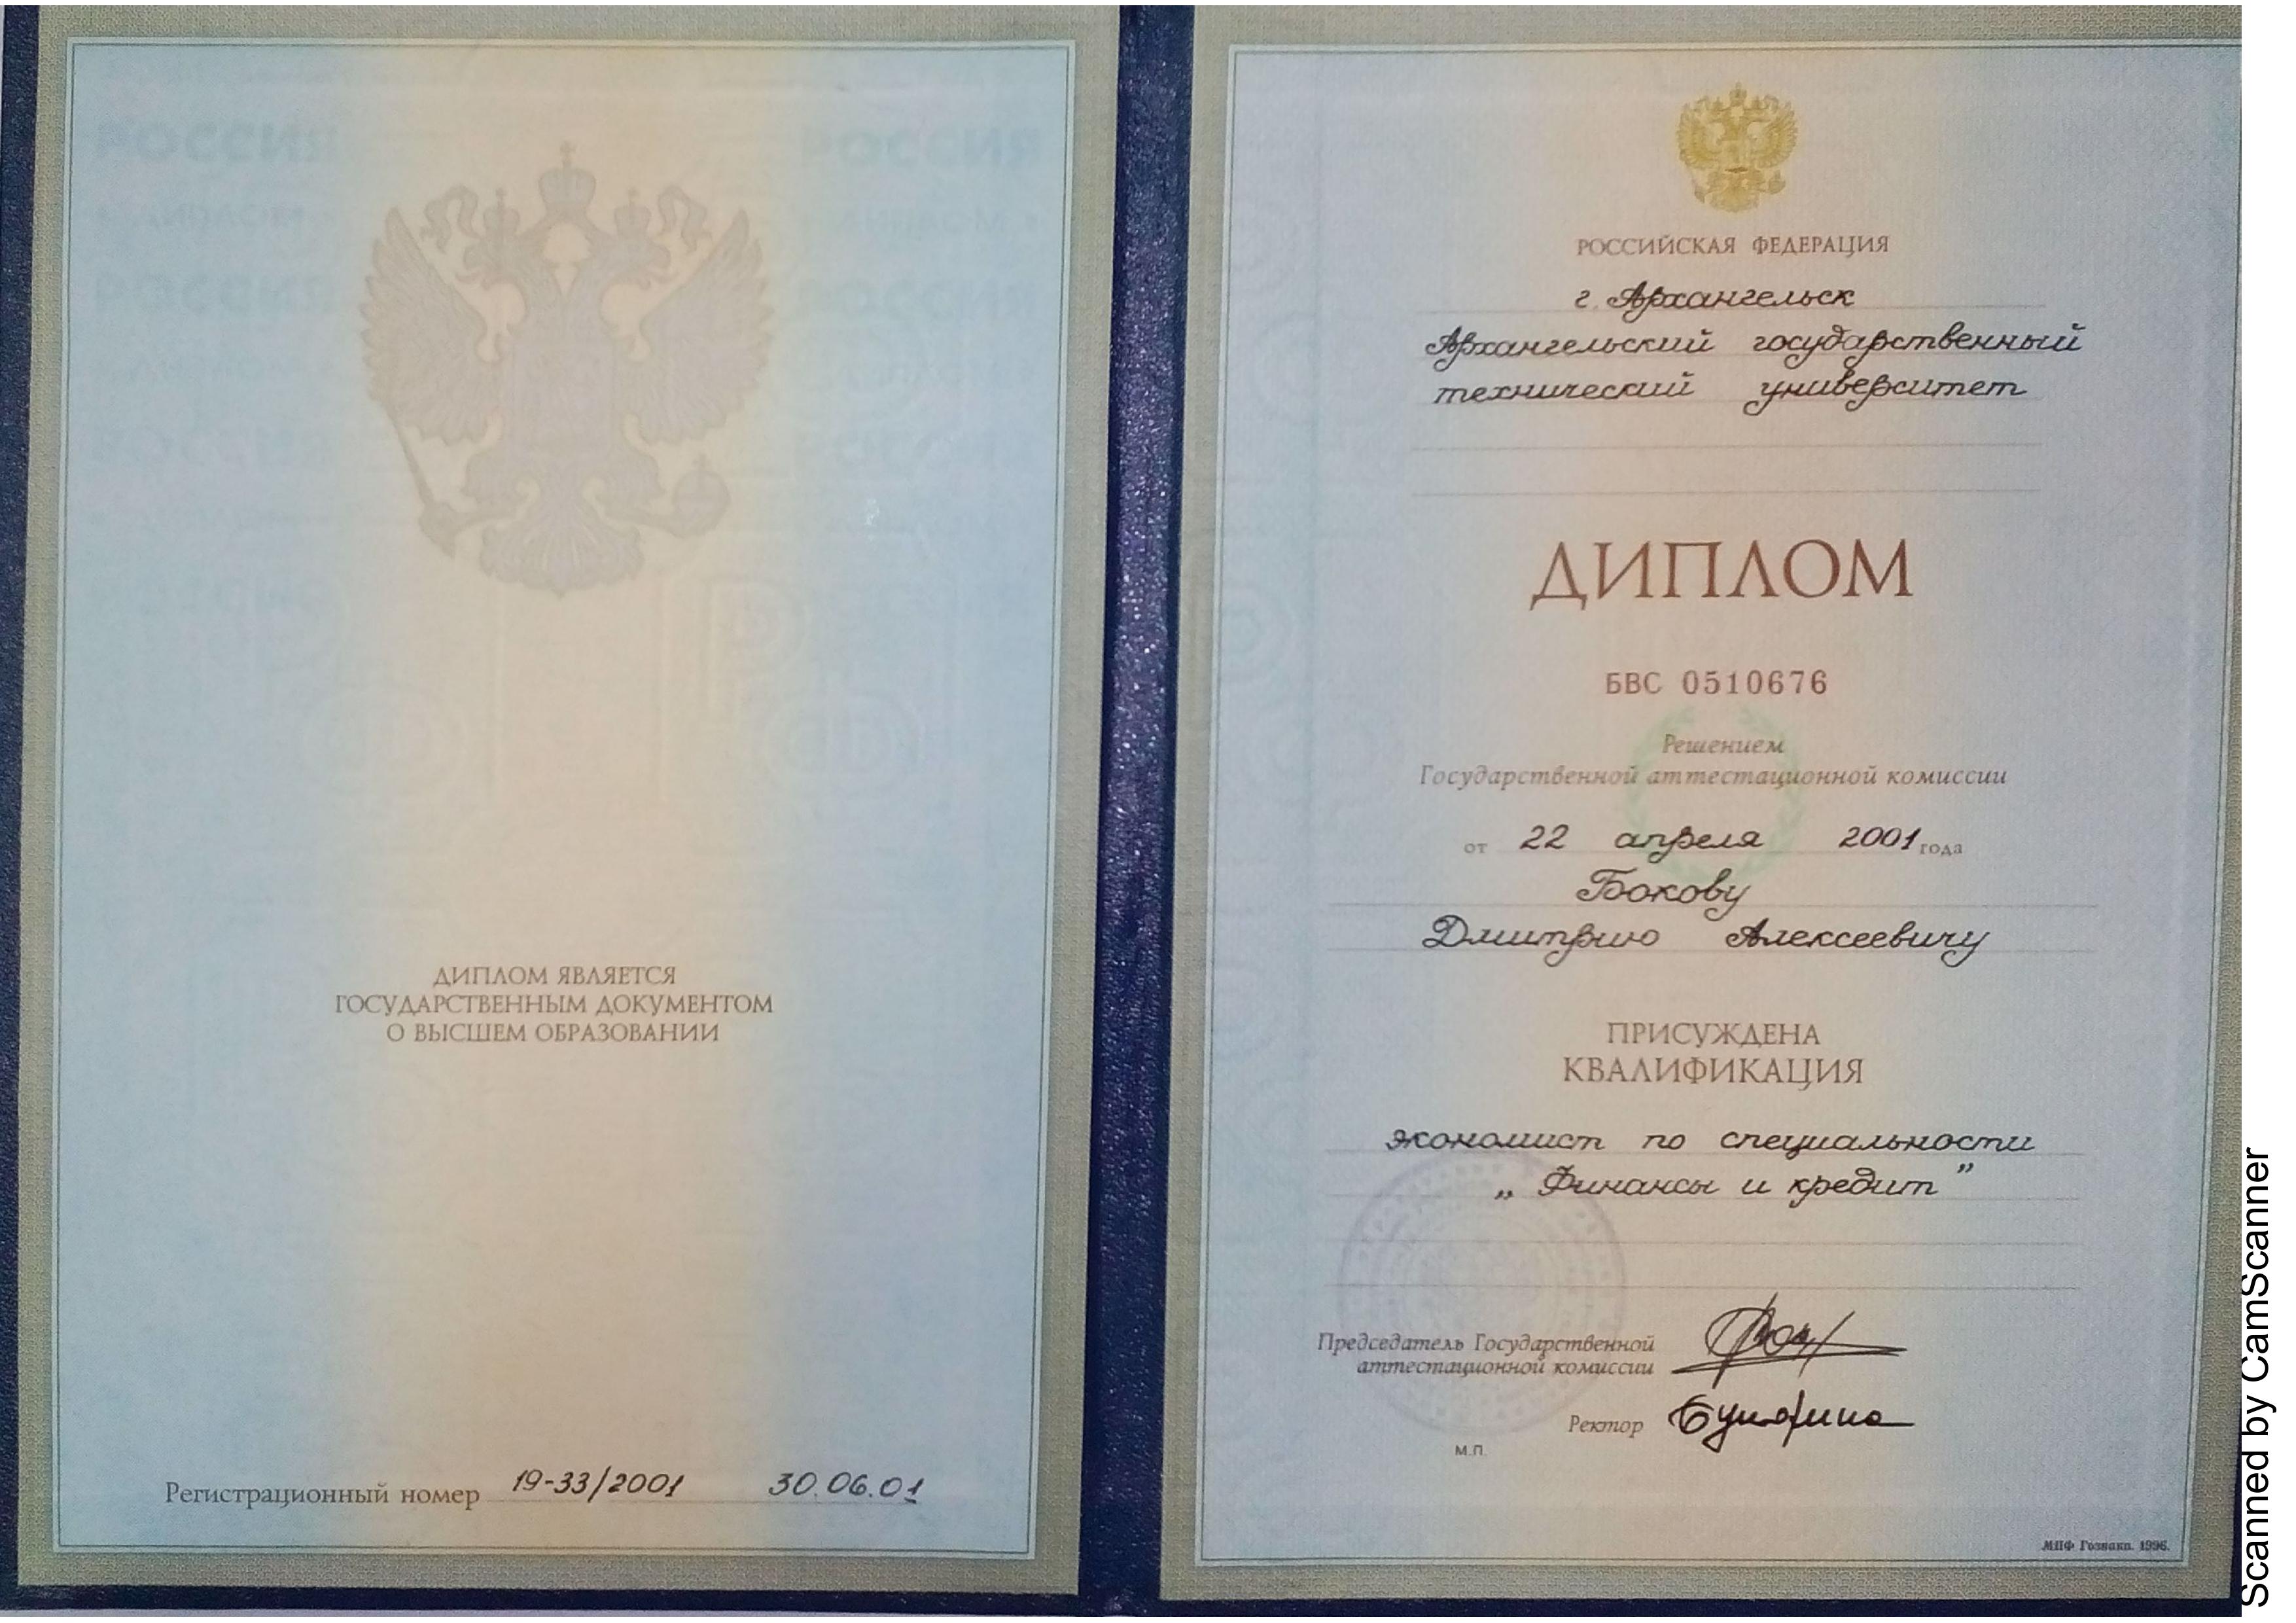 РОССИЯ РОССИЯ
«ДИПЛОМ» «ДИПЛОМ»
РОССИЯ РОССИЯ
«ДИПЛОМ» «ДИПЛОМ»
РОССИЯ РОССИЯ
ДИПЛОМ ЯВЛЯЕТСЯ
ГОСУДАРСТВЕННЫМ ДОКУМЕНТОМ
О ВЫСШЕМ ОБРАЗОВАНИИ
Регистрационный номер 19-33/2001 30.06.01
РОССИЙСКАЯ ФЕДЕРАЦИЯ
г. Архангельск
Архангельский государственный
технический университет
ДИПЛОМ
БВС 0510676
Решением
Государственной аттестационной комиссии
от 22 апреля 2001 года
Бокову
Дмитрию Алексеевичу
ПРИСУЖДЕНА
КВАЛИФИКАЦИЯ
экономист по специальности
„Финансы и кредит”
Председатель Государственной
аттестационной комиссии
Ректор
М.П.
МПФ Гознака. 1996.
Scanned by CamScanner